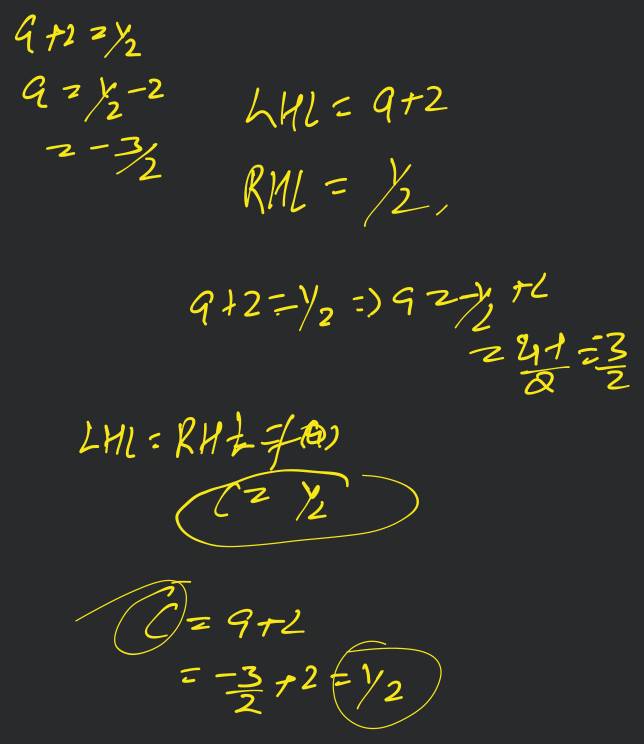 a+2=1/2
a=1/2-2
=-3/2
LHL=a+2
RHL=1/2,
a+2=1/2=>a=-1/2+2
=4-1/2=3/2
LHL=RHL=f(0)
C=1/2
C=a+2
=-3/2+2=1/2